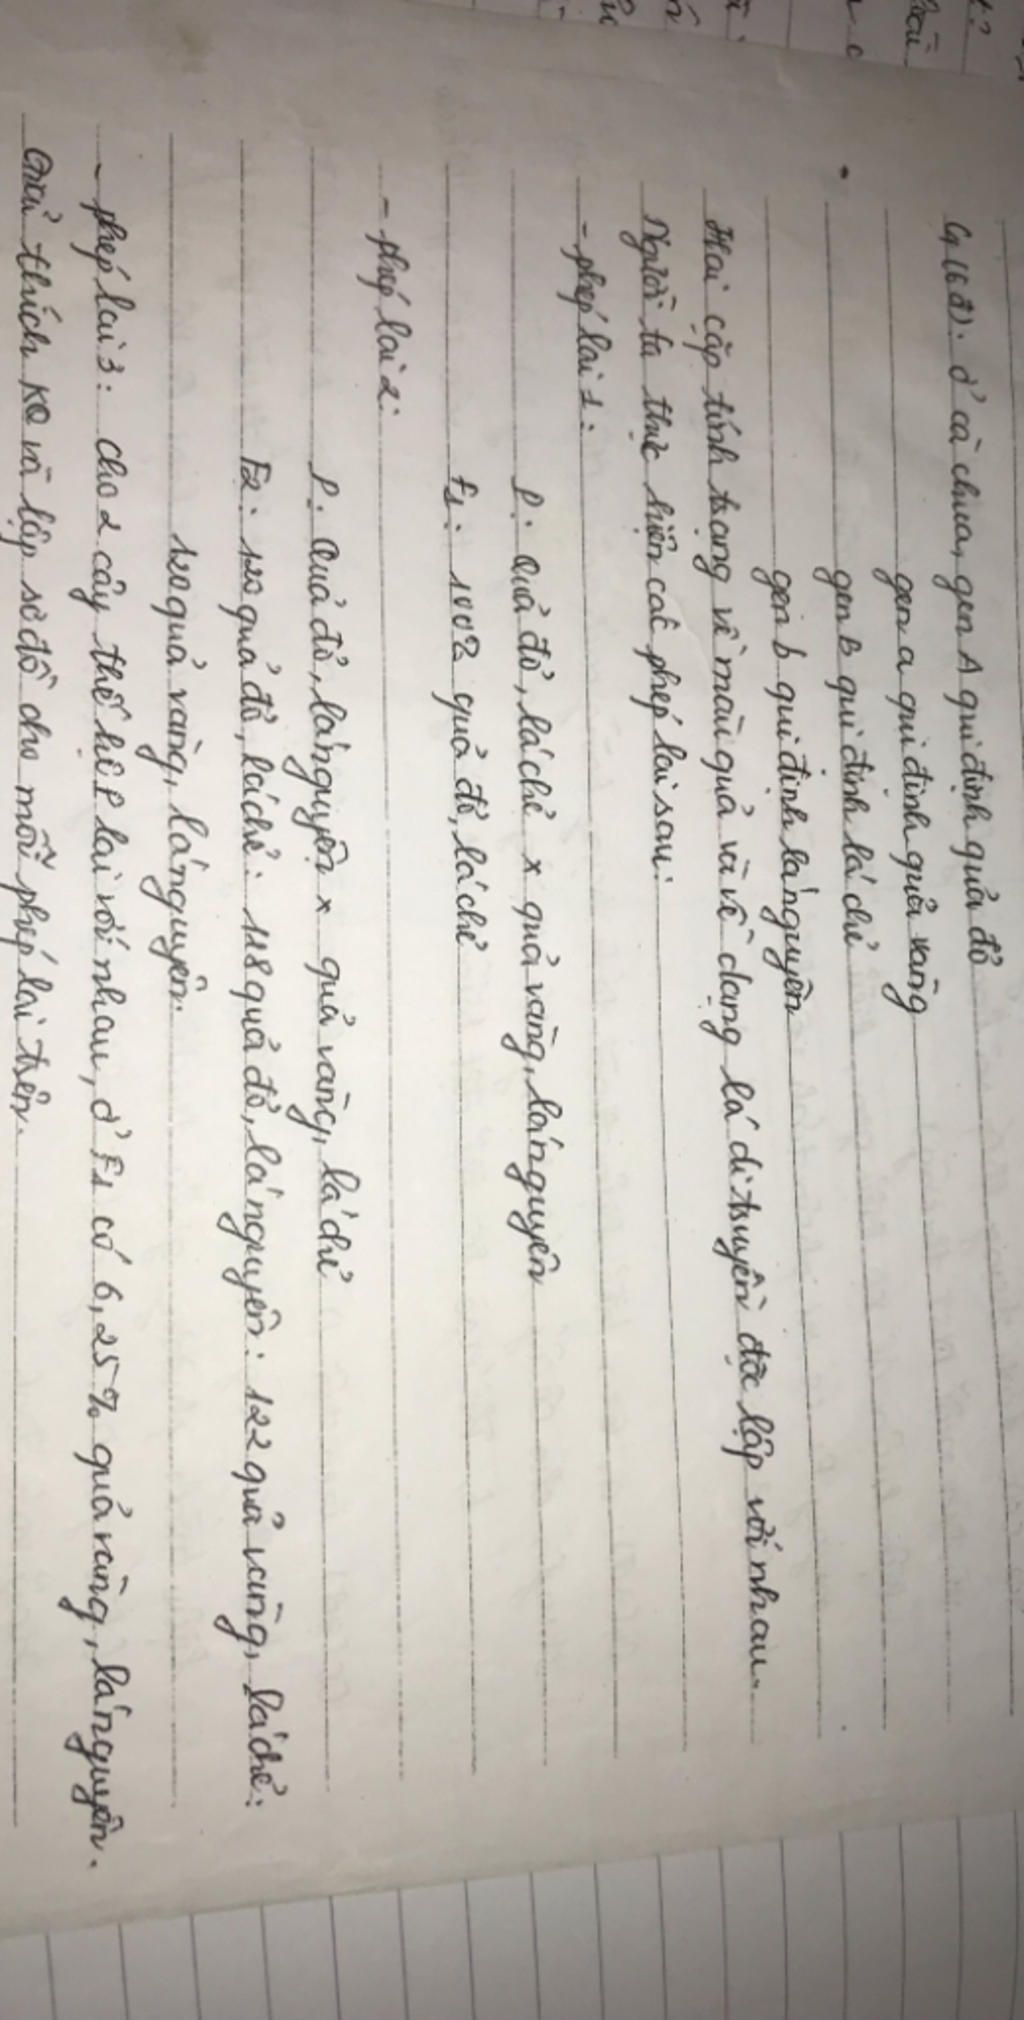 C4 (6đ). Ở cà chua, gen A qui định quả đỏ
gen a qui định quả vàng
gen B qui định lá chẻ
gen b qui định lá nguyên
Hai cặp tính trạng về màu quả và về dạng lá di truyền độc lập với nhau.
Người ta thực hiện các phép lai sau:
- phép lai 1:
P: Quả đỏ, lá chẻ x quả vàng, lá nguyên
F1: 100% quả đỏ, lá chẻ
- phép lai 2:
P: Quả đỏ, lá nguyên x quả vàng, lá chẻ
F2: 120 quả đỏ, lá chẻ: 118 quả đỏ, lá nguyên: 122 quả vàng, lá chẻ:
120 quả vàng, lá nguyên.
- phép lai 3: cho 2 cây thế hệ P lai với nhau, ở F1 có 6,25% quả vàng, lá nguyên.
Giải thích KQ và lập sơ đồ cho mỗi phép lai trên.